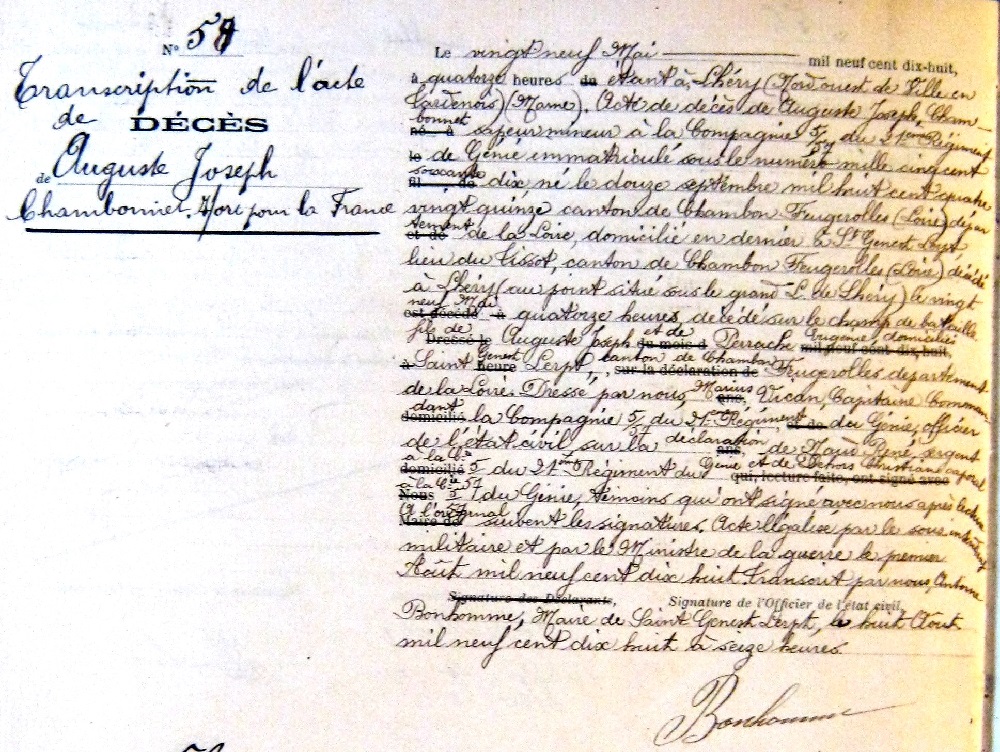 N° 54
Transcription de l'acte
de DÉCÈS
de Auguste Joseph
Chambonnet. Mort pour la France
Le vingt neuf Mai mil neuf cent dix-huit,
à quatorze heures du étant à Lhéry (Nord ouest de Ville en
Tardenois) (Marne), Acte de décès de Auguste Joseph, Cham-
bonnet
né à sapeur mineur à la Compagnie 5/ du 21eme Régiment
le de Génie immatriculé sous le numéro mille cinq cent
soixante
dix né le douze septembre mil huit cent quatre
vingt quinze canton de Chambon-Feugerolles (Loire) dépar
tement
et de de la Loire, domicilié en dernier à St Genest Lerpt
lieu du Tissot, canton de Chambon Feugerolles (Loire) décédé
à Lhéry (au point situé sous le grand L. de Lhéry) le vingt
neuf Mai
est décédé à quatorze heures, décédé sur le champ de bataille
fils de
Dressé le Auguste Joseph du mois d et de Perrache Eugénie, domiciliés mil neuf cent dix-huit,
à Saint Genest heure Lerpt, canton de Chambon sur la déclaration de Feugerolles département
de la Loire. Dressé par nous Marius ans, Vican, Capitaine Comman-
dant
domicilié la Compagnie 5/ du 21e Régiment et de du Génie, officier
de l'état civil, sur la déclaration ans, de René, sergent
à la Cie
domicilié 5 du 21eme Régiment du Génie et de Dehors Christian caporal qui, lecture faite, ont signé avec
à la Cie 51
Nous 5 du Génie, témoins qui ont signé avec nous après lecture
A l'original
Maire de suivent les signatures. Acte légalisé par le sous intendant
militaire et par le Ministre de la guerre le premier
Août mil neuf cent dix huit. Transcrit par nous, Antoine
Signature des Déclarants, Signature de l'Officier de l'état civil,
Bonhomme, Maire de Saint Genest Lerpt, le huit Août
mil neuf cent dix huit à seize heures.
Bonhomme